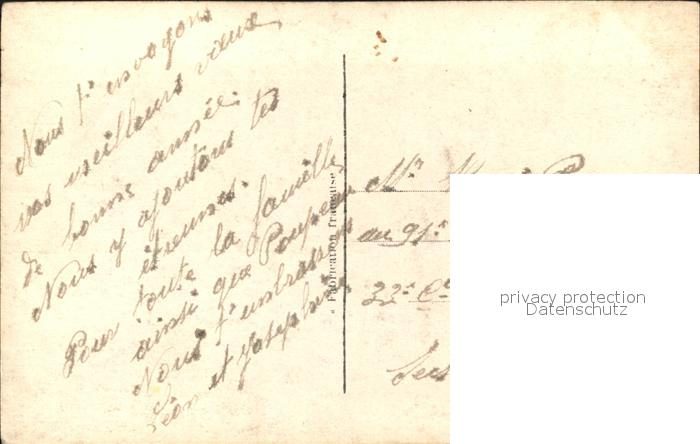 Nous t'envoyons
nos meilleurs vœux
de bonne année.
Nous y ajoutons tes
étrennes.
Pour toute la famille
ainsi que Poupeau
Nous t'embrassons
Léon et Joséphine
« Fabrication française »
Mr
au 91e
22e Cie
privacy protection
Datenschutz